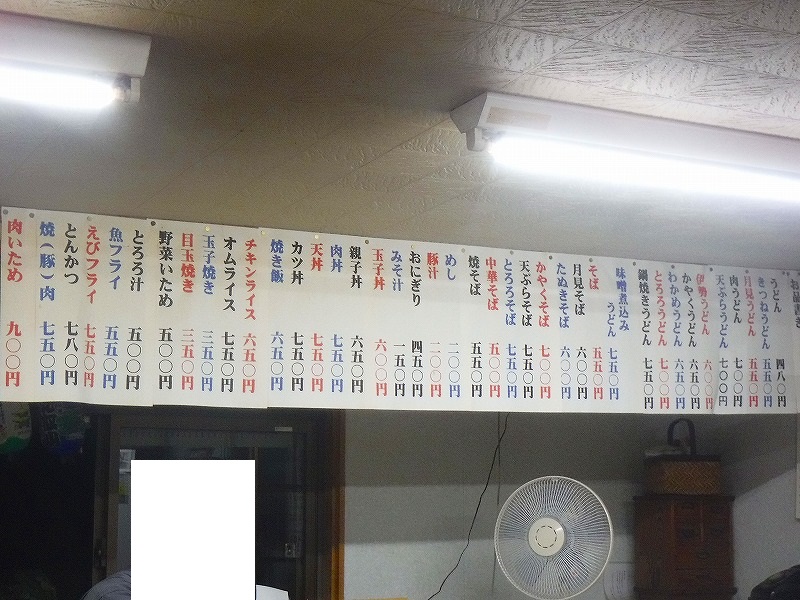 お品書き
うどん 四八〇円
きつねうどん 五五〇円
月見うどん 五五〇円
肉うどん 七〇〇円
天ぷらうどん 七〇〇円
伊勢うどん 六〇〇円
かやくうどん 六五〇円
わかめうどん 六五〇円
とろろうどん 七〇〇円
鍋焼きうどん 七五〇円
味噌煮込み
うどん 七五〇円
そば 五五〇円
月見そば 六〇〇円
たぬきそば 六〇〇円
かやくそば 七〇〇円
天ぷらそば 七五〇円
とろろそば 七五〇円
中華そば 五〇〇円
焼そば 五五〇円
めし 二〇〇円
豚汁 二〇〇円
おにぎり 四五〇円
みそ汁 一五〇円
玉子丼 六〇〇円
親子丼 六五〇円
肉丼 七五〇円
天丼 七五〇円
カツ丼 七五〇円
焼き飯 六五〇円
チキンライス 六五〇円
オムライス 七五〇円
玉子焼き 三五〇円
目玉焼き 三五〇円
野菜いため 五〇〇円
とろろ汁 五〇〇円
魚フライ 五五〇円
えびフライ 七五〇円
とんかつ 七八〇円
焼(豚)肉 七五〇円
肉いため 九〇〇円